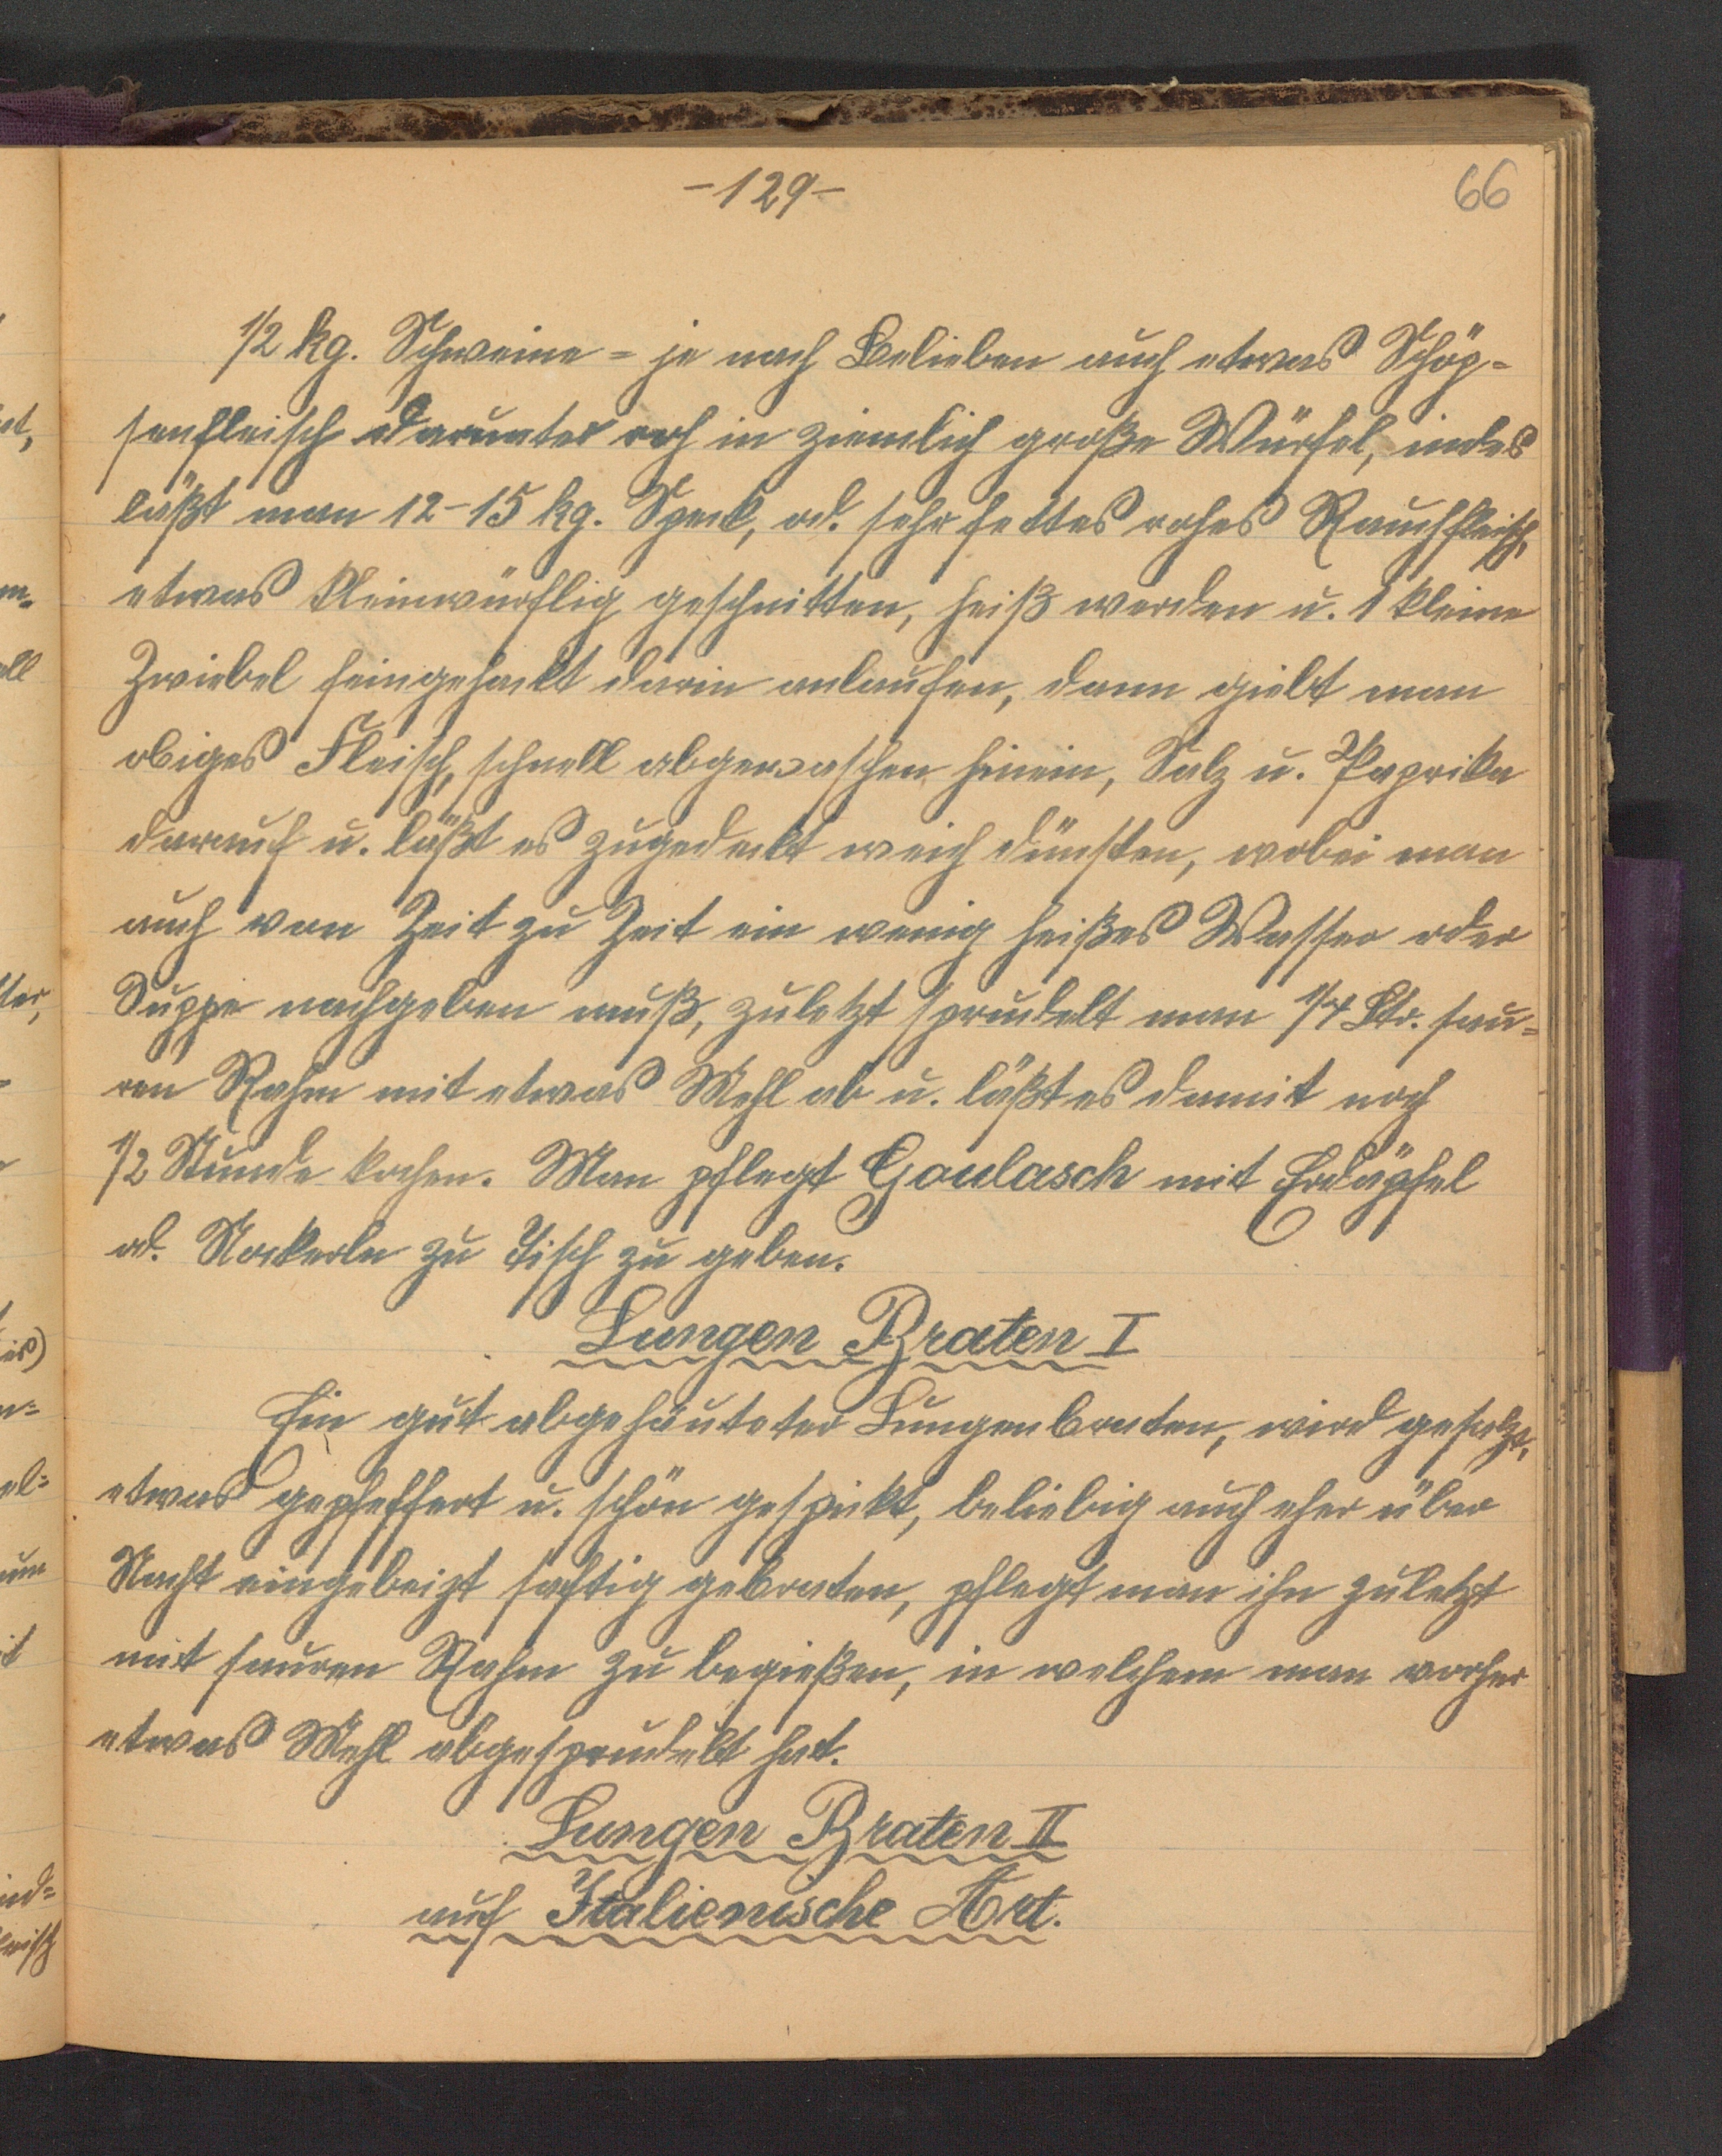 -129-
66
1/2 kg. Schweine = je nach Belieben auch etwas Schöp=
senfleisch darunter roh in ziemlich große Würfel, indes
läßt man 12-15 kg. Speck, od. sehr fettes rohes Rauchfleisch,
etwas kleinwürflig geschnitten, heiß werden u. 1 kleine
Zwiebel feingehackt darin anlaufen, dann giebt man
obiges Fleisch, schnell abgewaschen hinein, Salz u. Paprika
darauf u. läßt es zugedeckt weich dünsten, wobei man
auch von Zeit zu Zeit ein wenig heißes Wasser oder
Suppe nachgeben muß, zuletzt sprudelt man 1/4 Ltr. sau=
ren Rahm mit etwas Mehl ab u. läßt es damit noch
1/2 Stunde kochen. Man pflegt Goulasch mit Erdäpfel
od. Nockerln zu Tisch zu geben.
Lungen Braten I
Ein gut abgehäuteter Lungenbraten, wird gesalzt,
etwas gepfeffert u. schön gespickt, beliebig auch eher über
Nacht eingebeizt saftig gebraten, pflegt man ihn zuletzt
mit sauren Rahm zu begießen, in welchem man vorher
etwas Mehl abgesprudelt hat.
Lungen Braten II
auf Italienische Art.